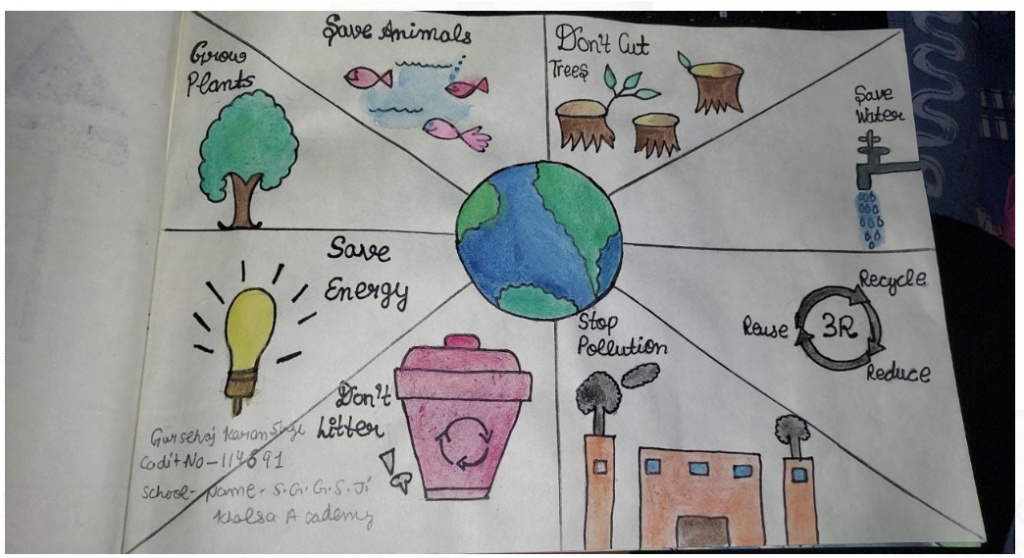 Grow
Plants
Save Animals
Don't Cut
Trees
Save
Water
Save
Energy
Don't
Litter
Stop
Pollution
Recycle
Reuse
3R
Reduce
Karan
Cadit No - 114591
School - Name - S.G.G.S. Ji
Khalsa Academy